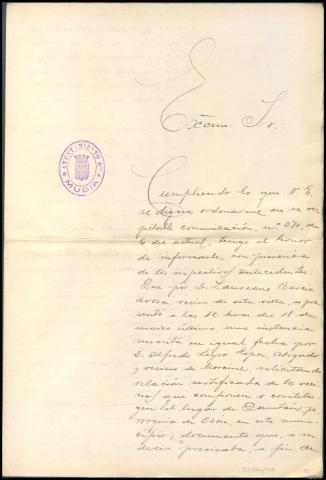 Excmo. Sr.:
AYUNTAMIENTO DE
MUGIA
Cumpliendo lo que V. E.
se digna ordenarme en su res
petable comunicación, nº 270, de
6 del actual, tengo el honor
de informarle, con presencia
de los respectivos antecedentes:
Que por D. Laureano
vecino de esta villa, se pre
sentó a las 12 horas del 18 de
marzo último, una instancia
suscrita en igual fecha por
D. Alfredo López, Abogado
y vecino de Moraime, solicitando
relación certificada de los veci
nos que componen o constitu
yen el lugar de Quintáns, pa
rroquia de Ozón, en este muni
cipio, documento que, a su
decir "precisaba, a fin de